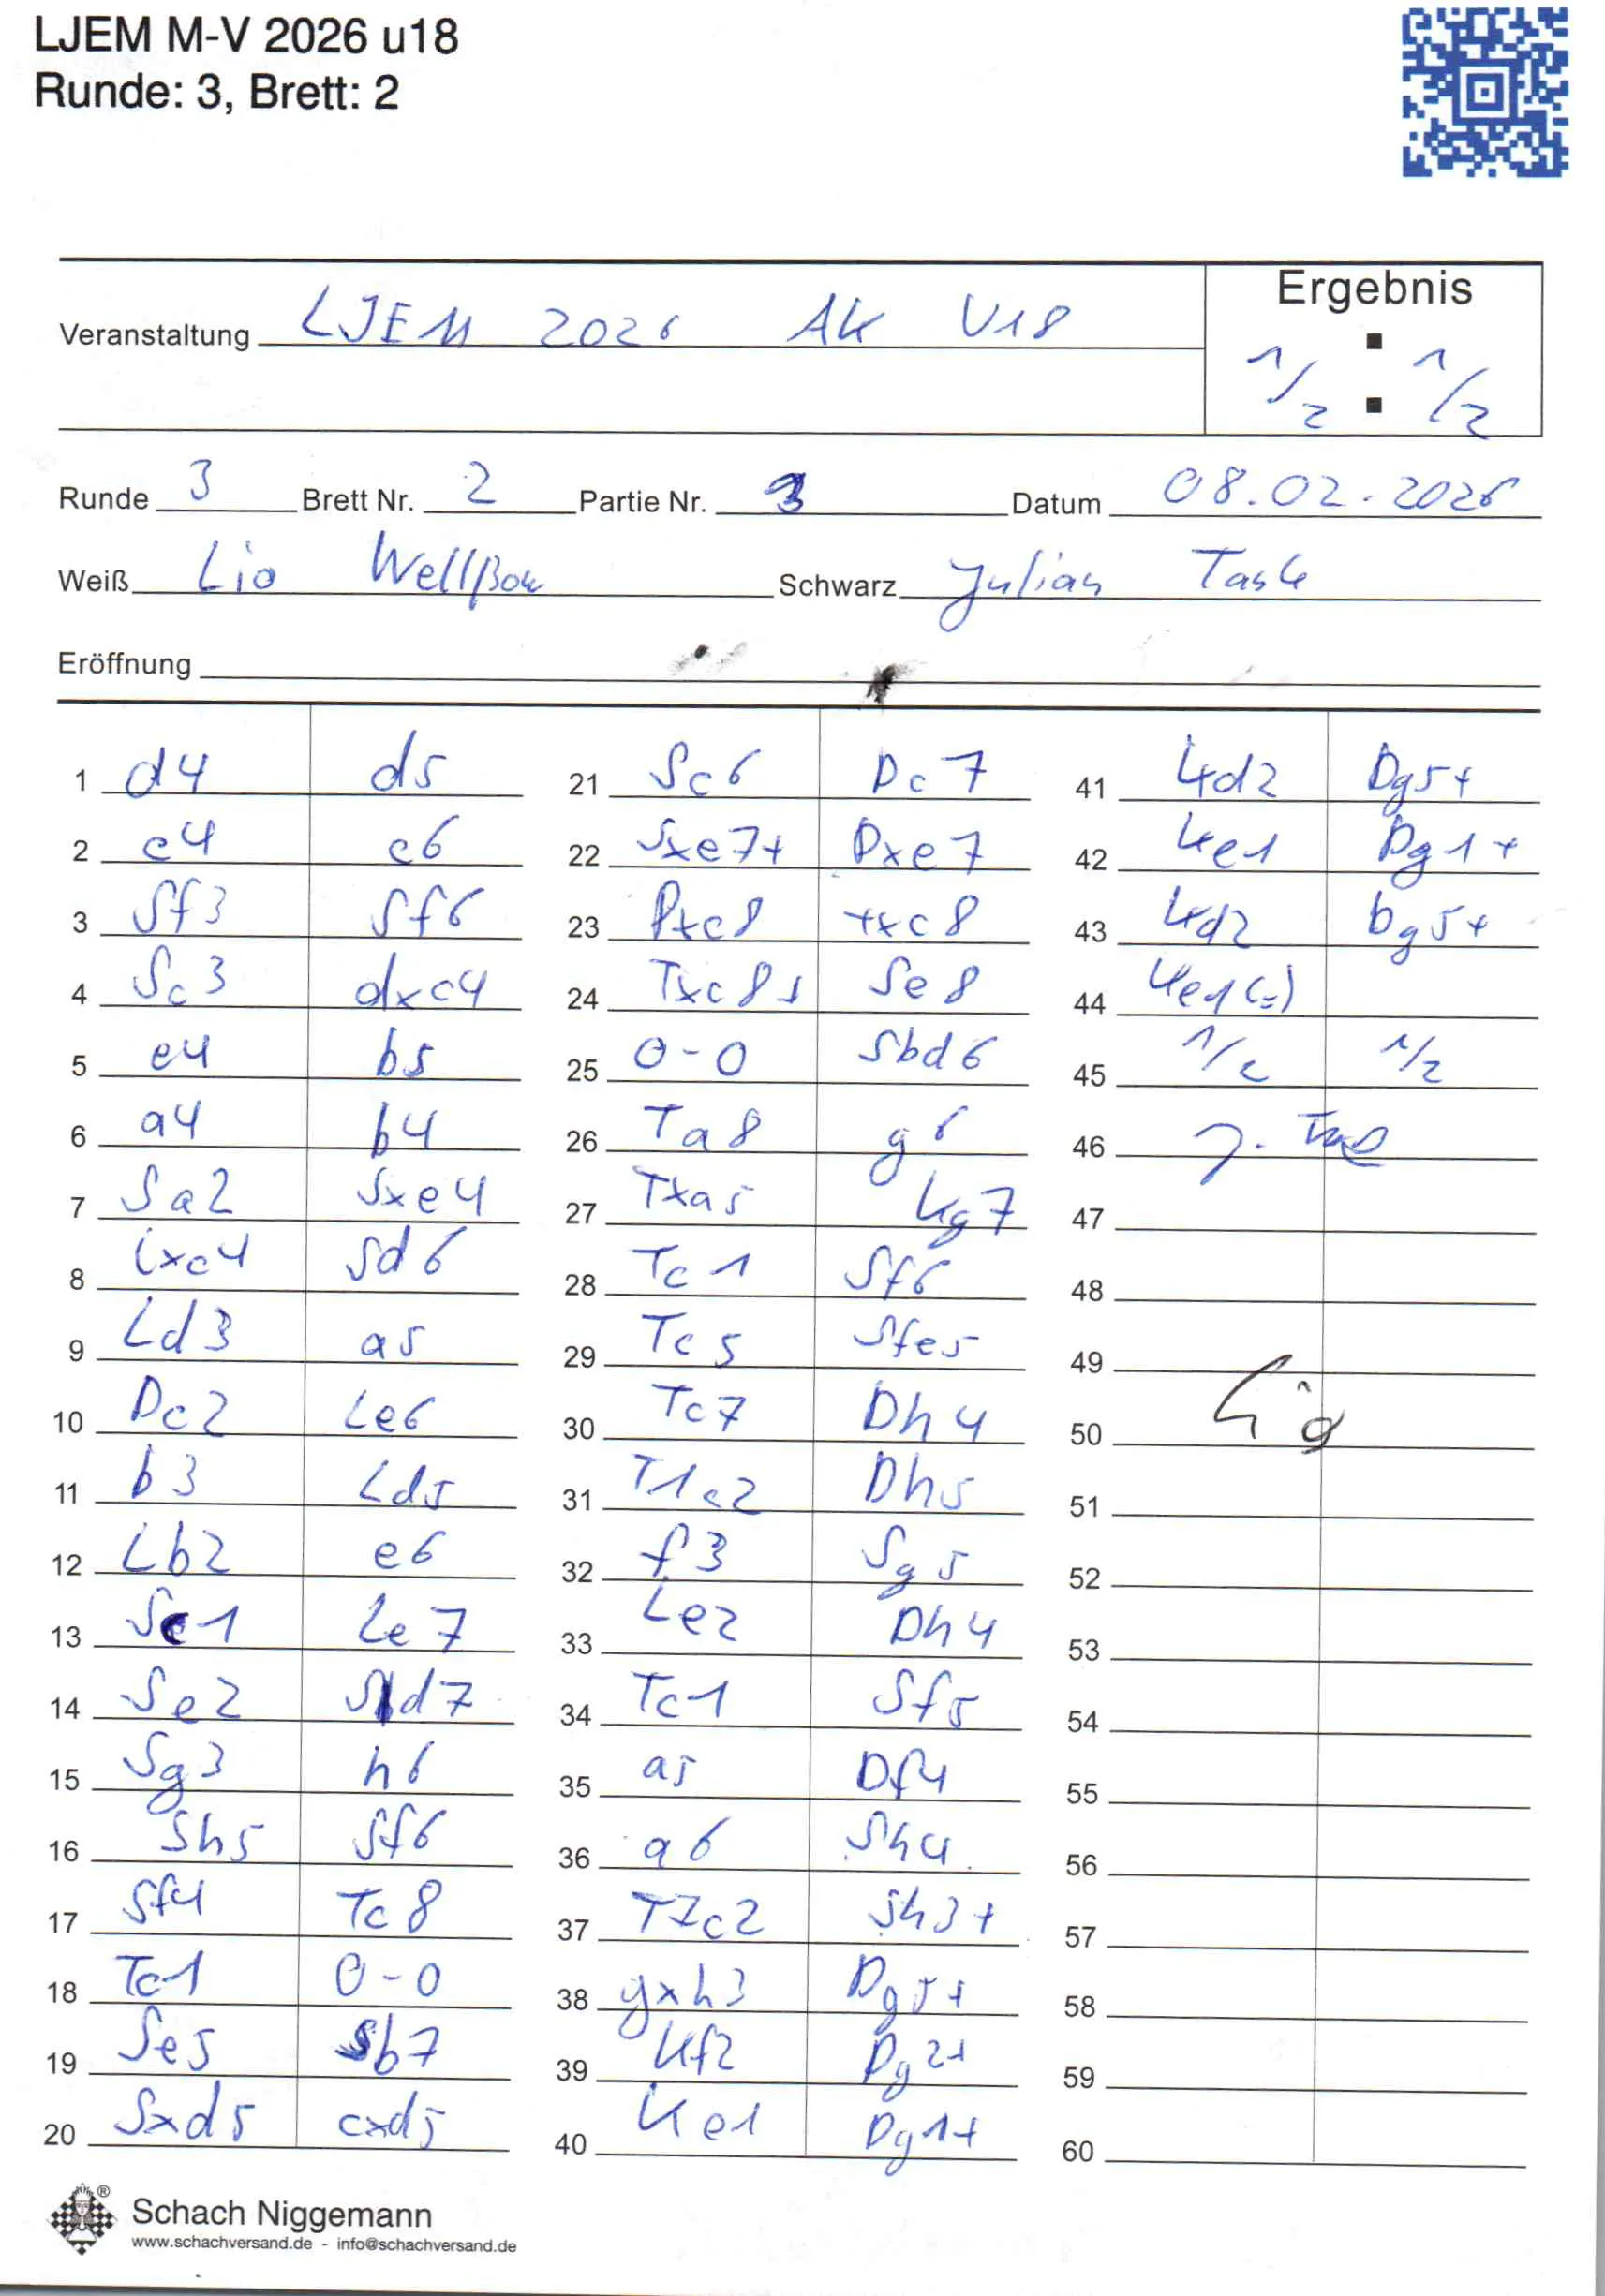 LJEM M-V 2026 u18
Runde: 3, Brett: 2
Ergebnis
Veranstaltung LJEM 2026 AK U18
1/2 : 1/2
Runde 3 Brett Nr. 2 Partie Nr. 3 Datum 08.02.2026
Weiß Lio Wellßow Schwarz Julian Task
Eröffnung
1 d4 d5 21 Sc6 Dc7 41 Kd2 Dg5+
2 c4 c6 22 Sxe7+ Dxe7 42 Ke1 Dg1+
3 Sf3 Sf6 23 Txc8 Txc8 43 Kd2 Dg5+
4 Sc3 dxc4 24 Txc8+ Se8 44 Ke1 (=)
5 e4 b5 25 0-0 Sbd6 45 1/2 1/2
6 a4 b4 26 Ta8 g6 46
7 Sa2 Sxe4 27 Txa5 Kg7 47
8 Lxc4 Sd6 28 Tc1 Sf6 48
9 Ld3 a5 29 Tc5 Sfe5 49
10 Dc2 Le6 30 Tc7 Dh4 50
11 b3 Ld5 31 T1c2 Dh5 51
12 Lb2 e6 32 f3 Sg5 52
13 Sc1 Le7 33 Le2 Dh4 53
14 Se2 Sd7 34 Tc1 Sf5 54
15 Sg3 h6 35 a5 Df4 55
16 Sh5 Sf6 36 a6 Sh4 56
17 Sf4 Tc8 37 T7c2 Sh3+ 57
18 Tc1 0-0 38 gxh3 Dg5+ 58
19 Se5 Sb7 39 Kf2 Dg2+ 59
20 Sxd5 cxd5 40 Ke1 Dg1+ 60
® Schach Niggemann
www.schachversand.de - info@schachversand.de